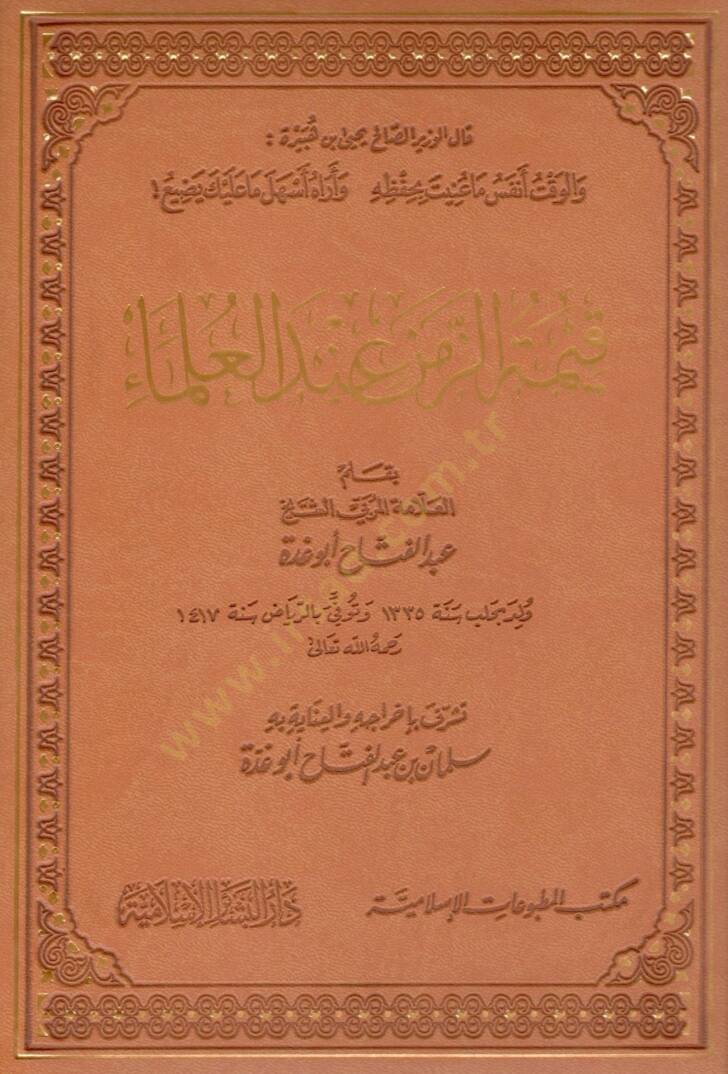 قال الوزير الصالح يحيى بن هُبَيْرة :
وَالوَقْتُ أَنفَسُ مَا عُنِيتَ بِحِفْظِهِ وَأَرَاهُ أَسْهَلَ مَا عَلَيْكَ يَضِيعُ !
قِيمَةُ الزَّمَنِ عِنْدَ العُلَمَاءِ
بقلم
العلامة المربي الشيخ
عبد الفتاح أبو غدة
وُلِدَ بحلب سَنَة ١٣٣٥ وَتُوُفِّيَ بالرِّيَاض سَنة ١٤١٧
رَحمهُ اللّه تعَالىٰ
تشرّف بإخراجهِ والعِنايةِ بهِ
سلمان بن عبد الفتاح أبو غدّة
مكتب المطبوعات الإسلاميَّة
دَارُ البَشَائِر الإسْلَاميَّة